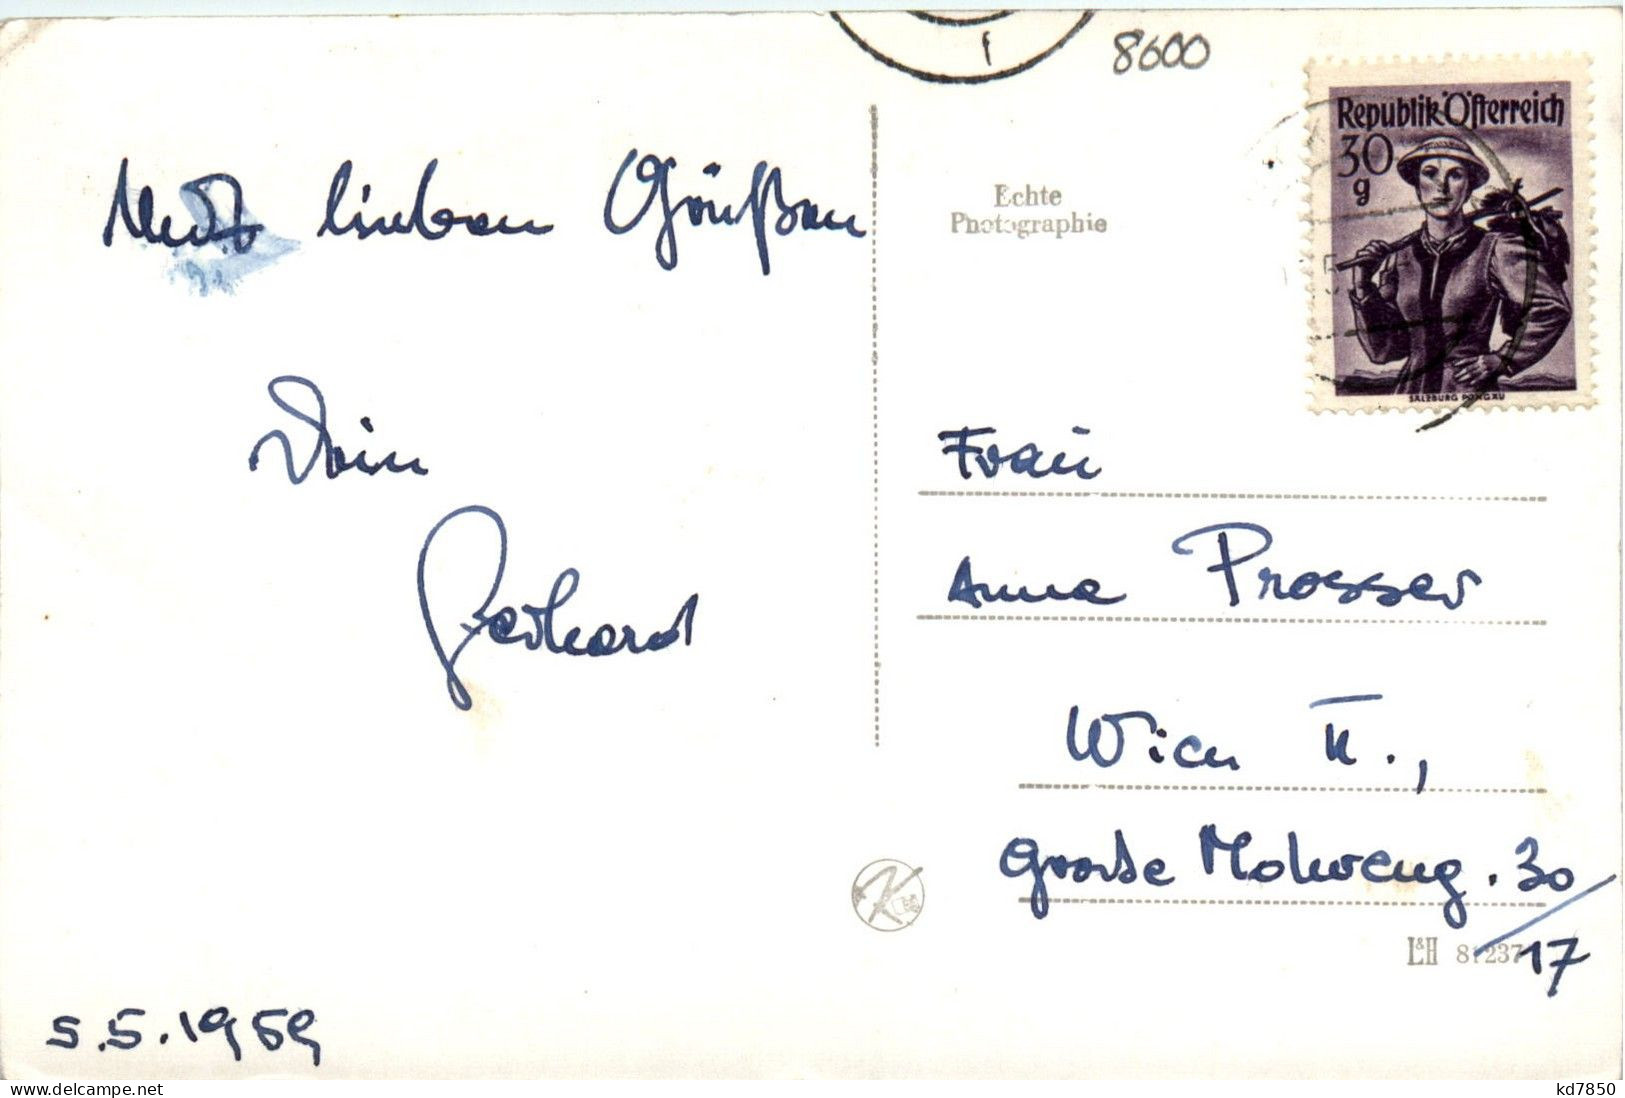 8600
Republik Österreich
30
g
SALZBURG PONGAU
Echte
Photographie
Mit lieben Grüßen
Dein
Gerhard
5.5.1959
Frau
Anna Prosser
Wien II.,
Große Mohreng. 30/17
K
L&H 81237
kd7850